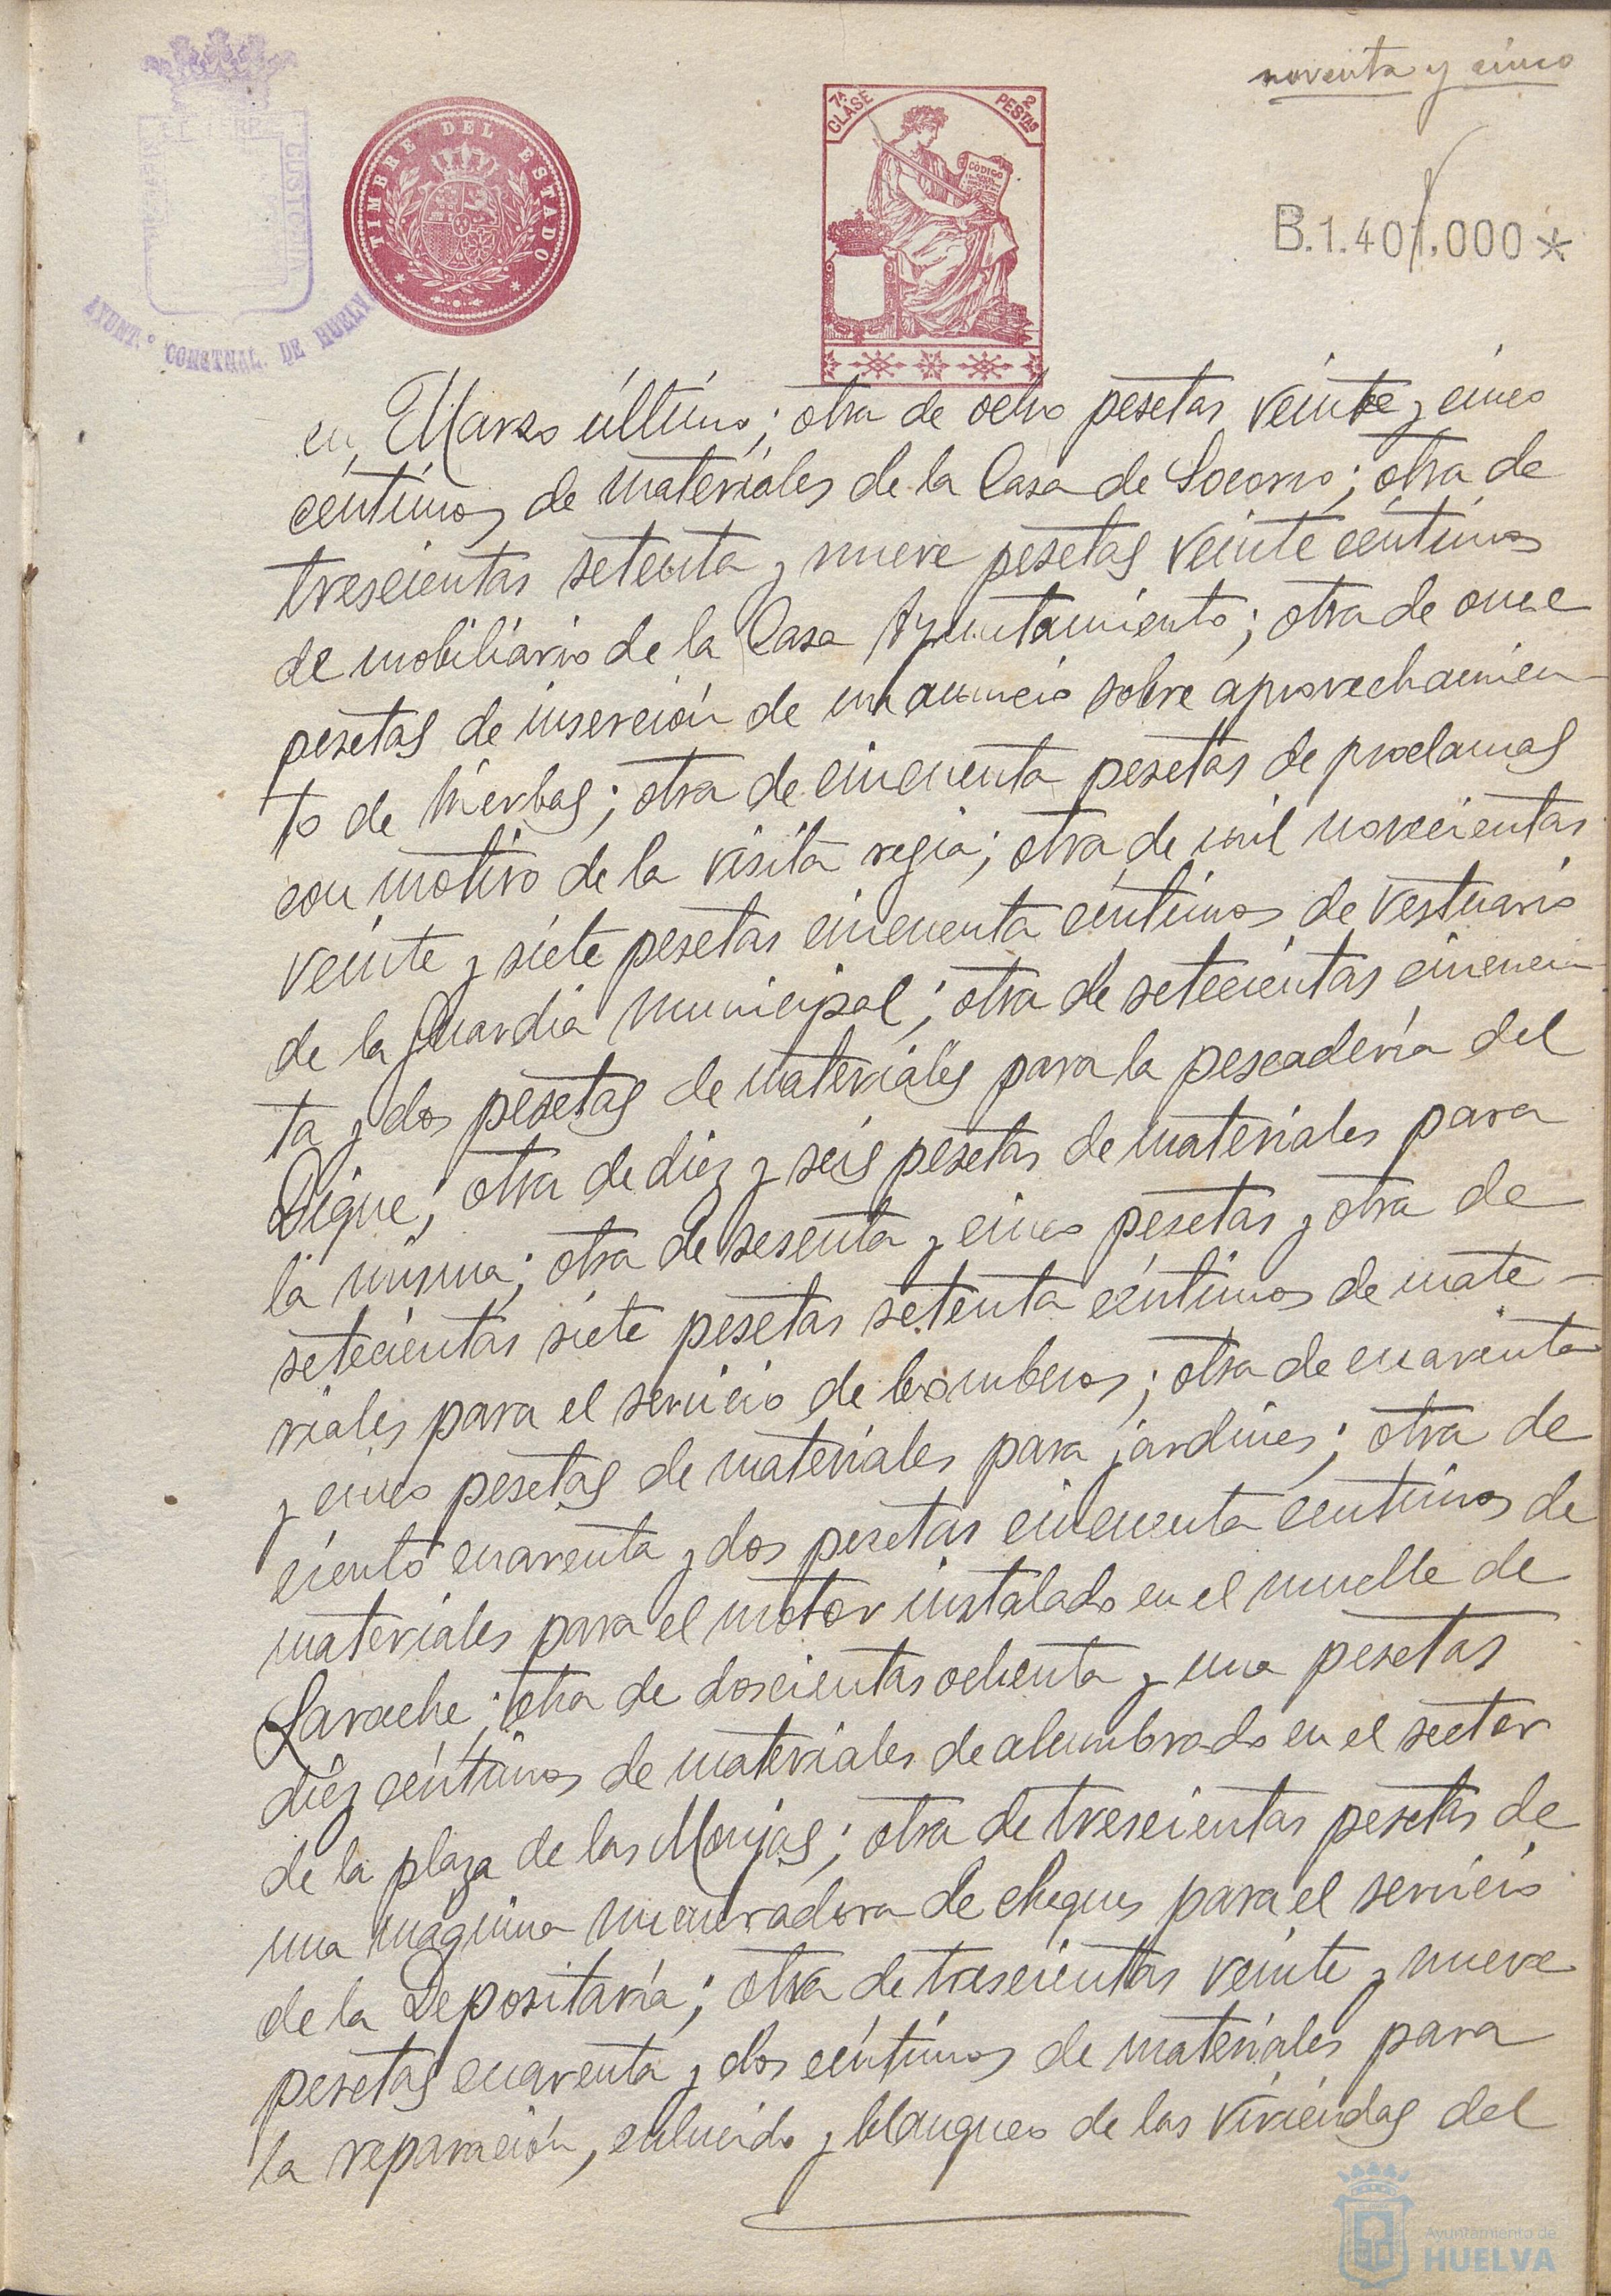 noventa y cinco
TIMBRE DEL ESTADO
7ª CLASE
2 PESTAS
CÓDIGO
B.1.401.000*
CUSTODIA
AYUNT.º CONSTNAL. DE HUELVA
en Marzo último; otra de ocho pesetas veinte y cinco
céntimos de materiales de la Casa de Socorro; otra de
trescientas setenta y nueve pesetas veinte céntimos
de mobiliario de la Casa Ayuntamiento; otra de once
pesetas de inserción de un anuncio sobre aprovechamien-
to de hierbas; otra de cincuenta pesetas de proclamas
con motivo de la visita regia; otra de mil novecientas
veinte y siete pesetas cincuenta céntimos de vestuario
de la Guardia municipal; otra de setecientas cincuen-
ta y dos pesetas de materiales para la pescadería del
Dique; otra de diez y seis pesetas de materiales para
la misma; otra de sesenta y cinco pesetas y otra de
setecientas siete pesetas setenta céntimos de mate-
riales para el servicio de bomberos; otra de cuarenta
y cinco pesetas de materiales para jardines; otra de
ciento cuarenta y dos pesetas cincuenta centimos de
materiales para el motor instalado en el muelle de
Larache; otra de doscientas ochenta y una pesetas
diez céntimos de materiales de alumbrado en el sector
de la plaza de las Monjas; otra de trescientas pesetas de
una máquina numeradora de cheques para el servicio
de la Depositaría; otra de trescientas veinte y nueve
pesetas cuarenta y dos céntimos de materiales para
la reparación, enlucido y blanqueo de las viviendas del
Ayuntamiento de
HUELVA